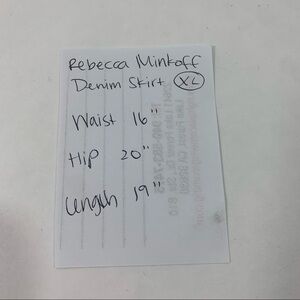 Rebecca Minkoff
Denim Skirt XL
Waist 16"
Hip 20"
Length 19"